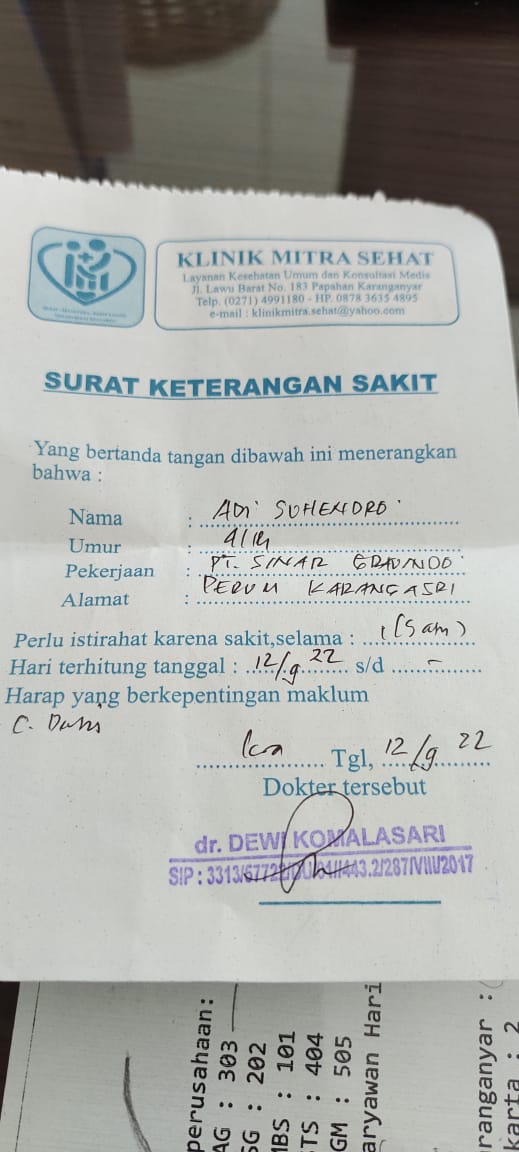 KLINIK MITRA SEHAT
Layanan Kesehatan Umum dan Konsultasi Medis
Jl. Lawu Barat No. 183 Papahan Karanganyar
Telp. (0271) 4991180 - HP. 0878 3635 4895
e-mail : klinikmitra.sehat@yahoo.com
SURAT KETERANGAN SAKIT
Yang bertanda tangan dibawah ini menerangkan
bahwa :
Nama : ADI SUHENDRO
Umur :
Pekerjaan : PT. SINAR
Alamat : PERUM KARANGASRI
Perlu istirahat karena sakit,selama : 1 (
Hari terhitung tanggal : 12/9 22 s/d -
Harap yang berkepentingan maklum
Kra Tgl, 12/9 22
Dokter tersebut
dr. DEWI KOMALASARI
SIP : 3313/ 443.2/287/VIII/2017
perusahaan:
AG : 303
SG : 202
MBS : 101
TS : 404
GM : 505
aryawan Hari
ranganyar :
karta : 2